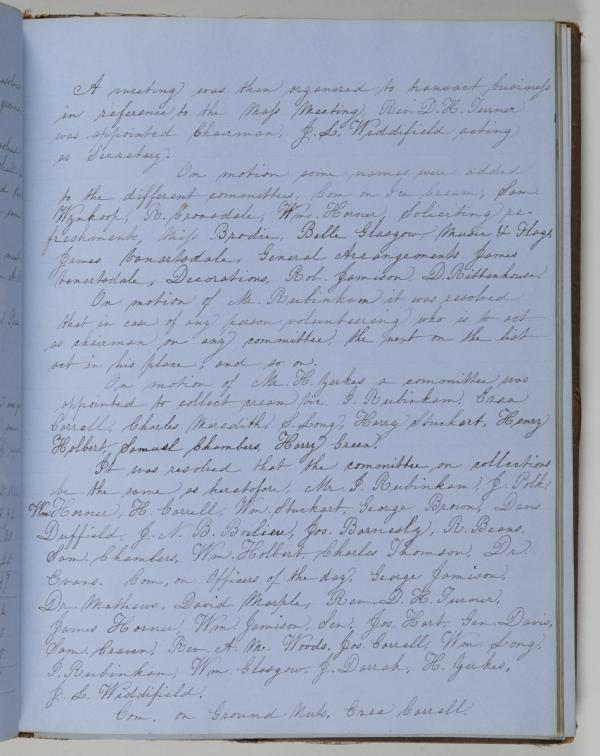 A meeting was then organized to transact business
in reference to the Mass Meeting, Rev. D. K. Turner
was appointed Chairman, J. L. Widdifield acting
as Secretary.
On motion some names were added
to the different committees, Com on Ice Cream, Sam.
Wynkoop, R. Croasdale, Wm. Horner, Soliciting re-
freshments, Miss Brodie, Belle Glasgow, Music & Flags,
James Vanartsdale, General Arrangements James
Vanartsdale, Decorations, Rob. Jamison, D. Rittenhouse.
On motion of Mr. Rubinkam it was resolved
that in case of any person volunteering who is to act
as chairman on any committee, the next on the list
act in his place, and so on.
On motion of Mr. H. Yerkes a committee was
appointed to collect cream viz. I. Rubinkam, Ezra
Carrell, Charles Meredith, S. Long, Harry Stuckart, Henry
Holbert, Samuel Chambers, Harry Green.
It was resolved that the committee on collections
be the same as heretofore, Mr. I. Rubinkam, J. Polk,
Wm. Horner, H. Carrell, Wm. Stuckart, George Brown, Davis
Duffield, J. N. B. Boileu, Jos. Barnesly, R. Beans,
Sam. Chambers, Wm. Holbert, Charles Thomson, Dr.
Evans. Com, on Officers of the day, George Jamison,
Dr. Mathews, David Marple, Rev. D. K. Turner,
James Horner, Wm. Jamison, Sen, Jos. Hart, Gen. Davis,
Sam. Craven, Rev. A. M. Woods, Jos. Carrell, Wm. Long,
I. Rubinkam, Wm. Glasgow, J. Darrah, H. Yerkes,
J. L. Widdifield.
Com. on Ground Nuts, Ezra Carrell.